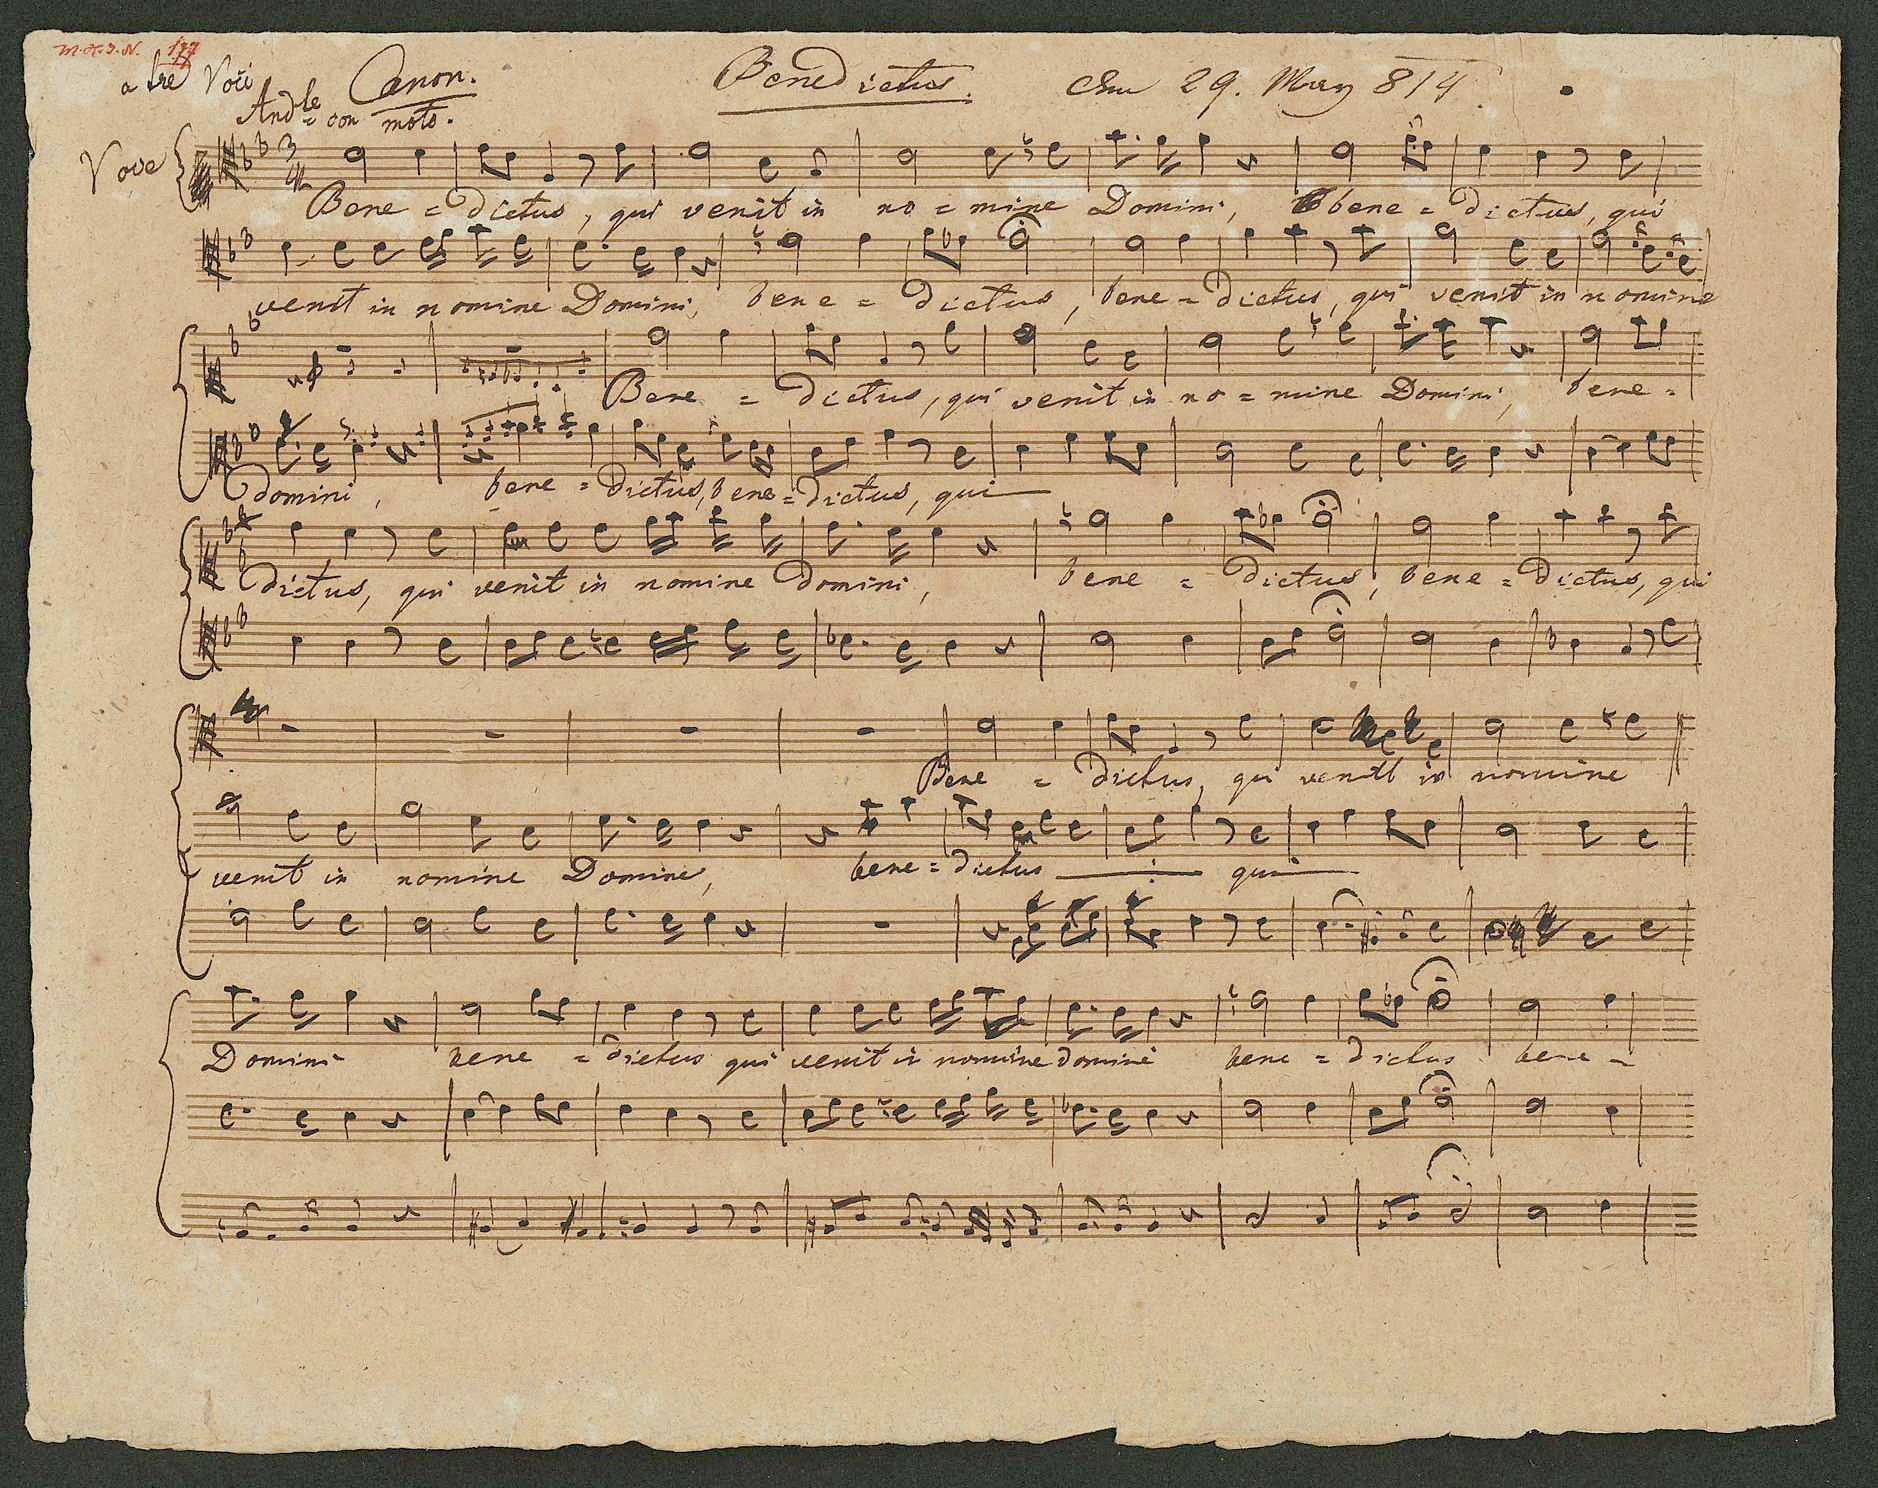 M.H.I.N. 177
a tre Voci Canon. Benedictus. 29. May 814.
And.le con moto.
Voce
Bene = dictus, qui venit in no = mine Domini, bene = dictus, qui
venit in nomine Domini, bene = dictus, bene = dictus, qui venit in nomine
Bene = dictus, qui venit in no = mine Domini, bene =
domini, bene = dictus, bene = dictus, qui
dictus, qui venit in nomine domini, bene = dictus, bene = dictus, qui
Bene = dictus, qui venit in nomine
venit in nomine Domine, bene = dictus qui
Domini bene = dictus qui venit in nomine domine bene = dictus bene =